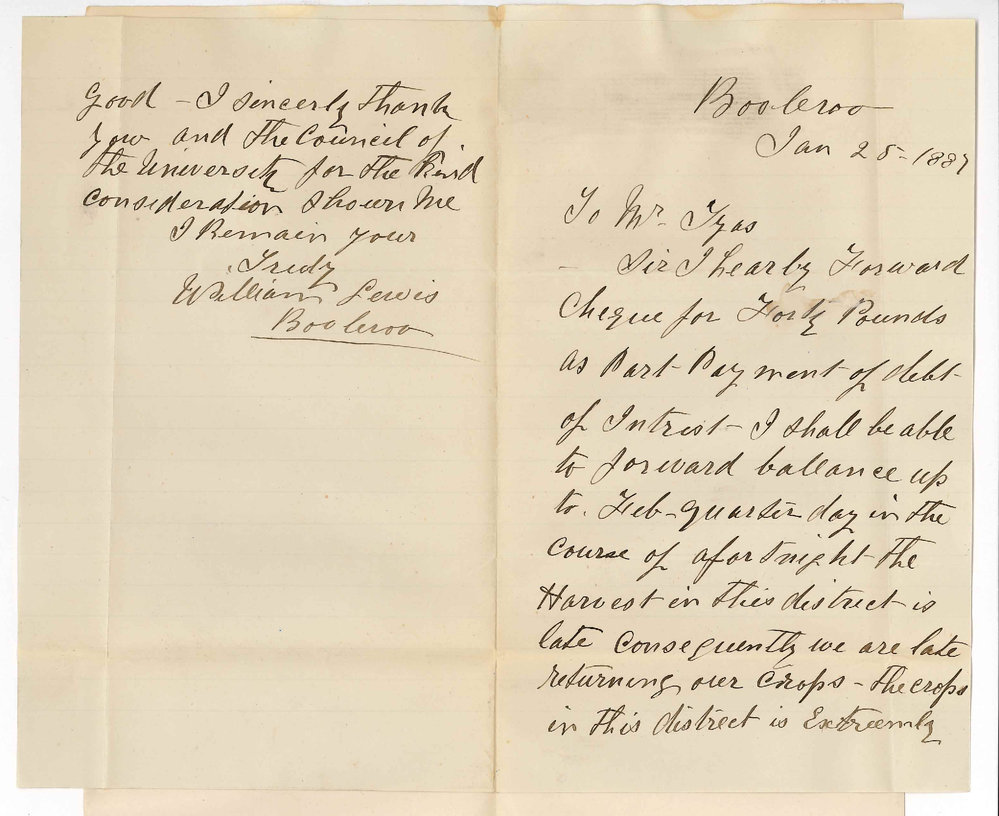 Booleroo
Jan 25 - 1887
To Mr. Tyas
- Sir I hearby Forward
Cheque for Forty Pounds
as Part Payment of debt
of Intrist - I shall be able
to forward ballance up
to. Feb - quarter day in the
course of a fortnight the
Harvest in this district is
late Consequently we are late
returning our Crops - The crops
in this district is Extreemly
Good - I sincerly Thank
you and the Council of
the University for the Kind
consideration shown Me
I Remain your
Truly
William Lewis
Booleroo